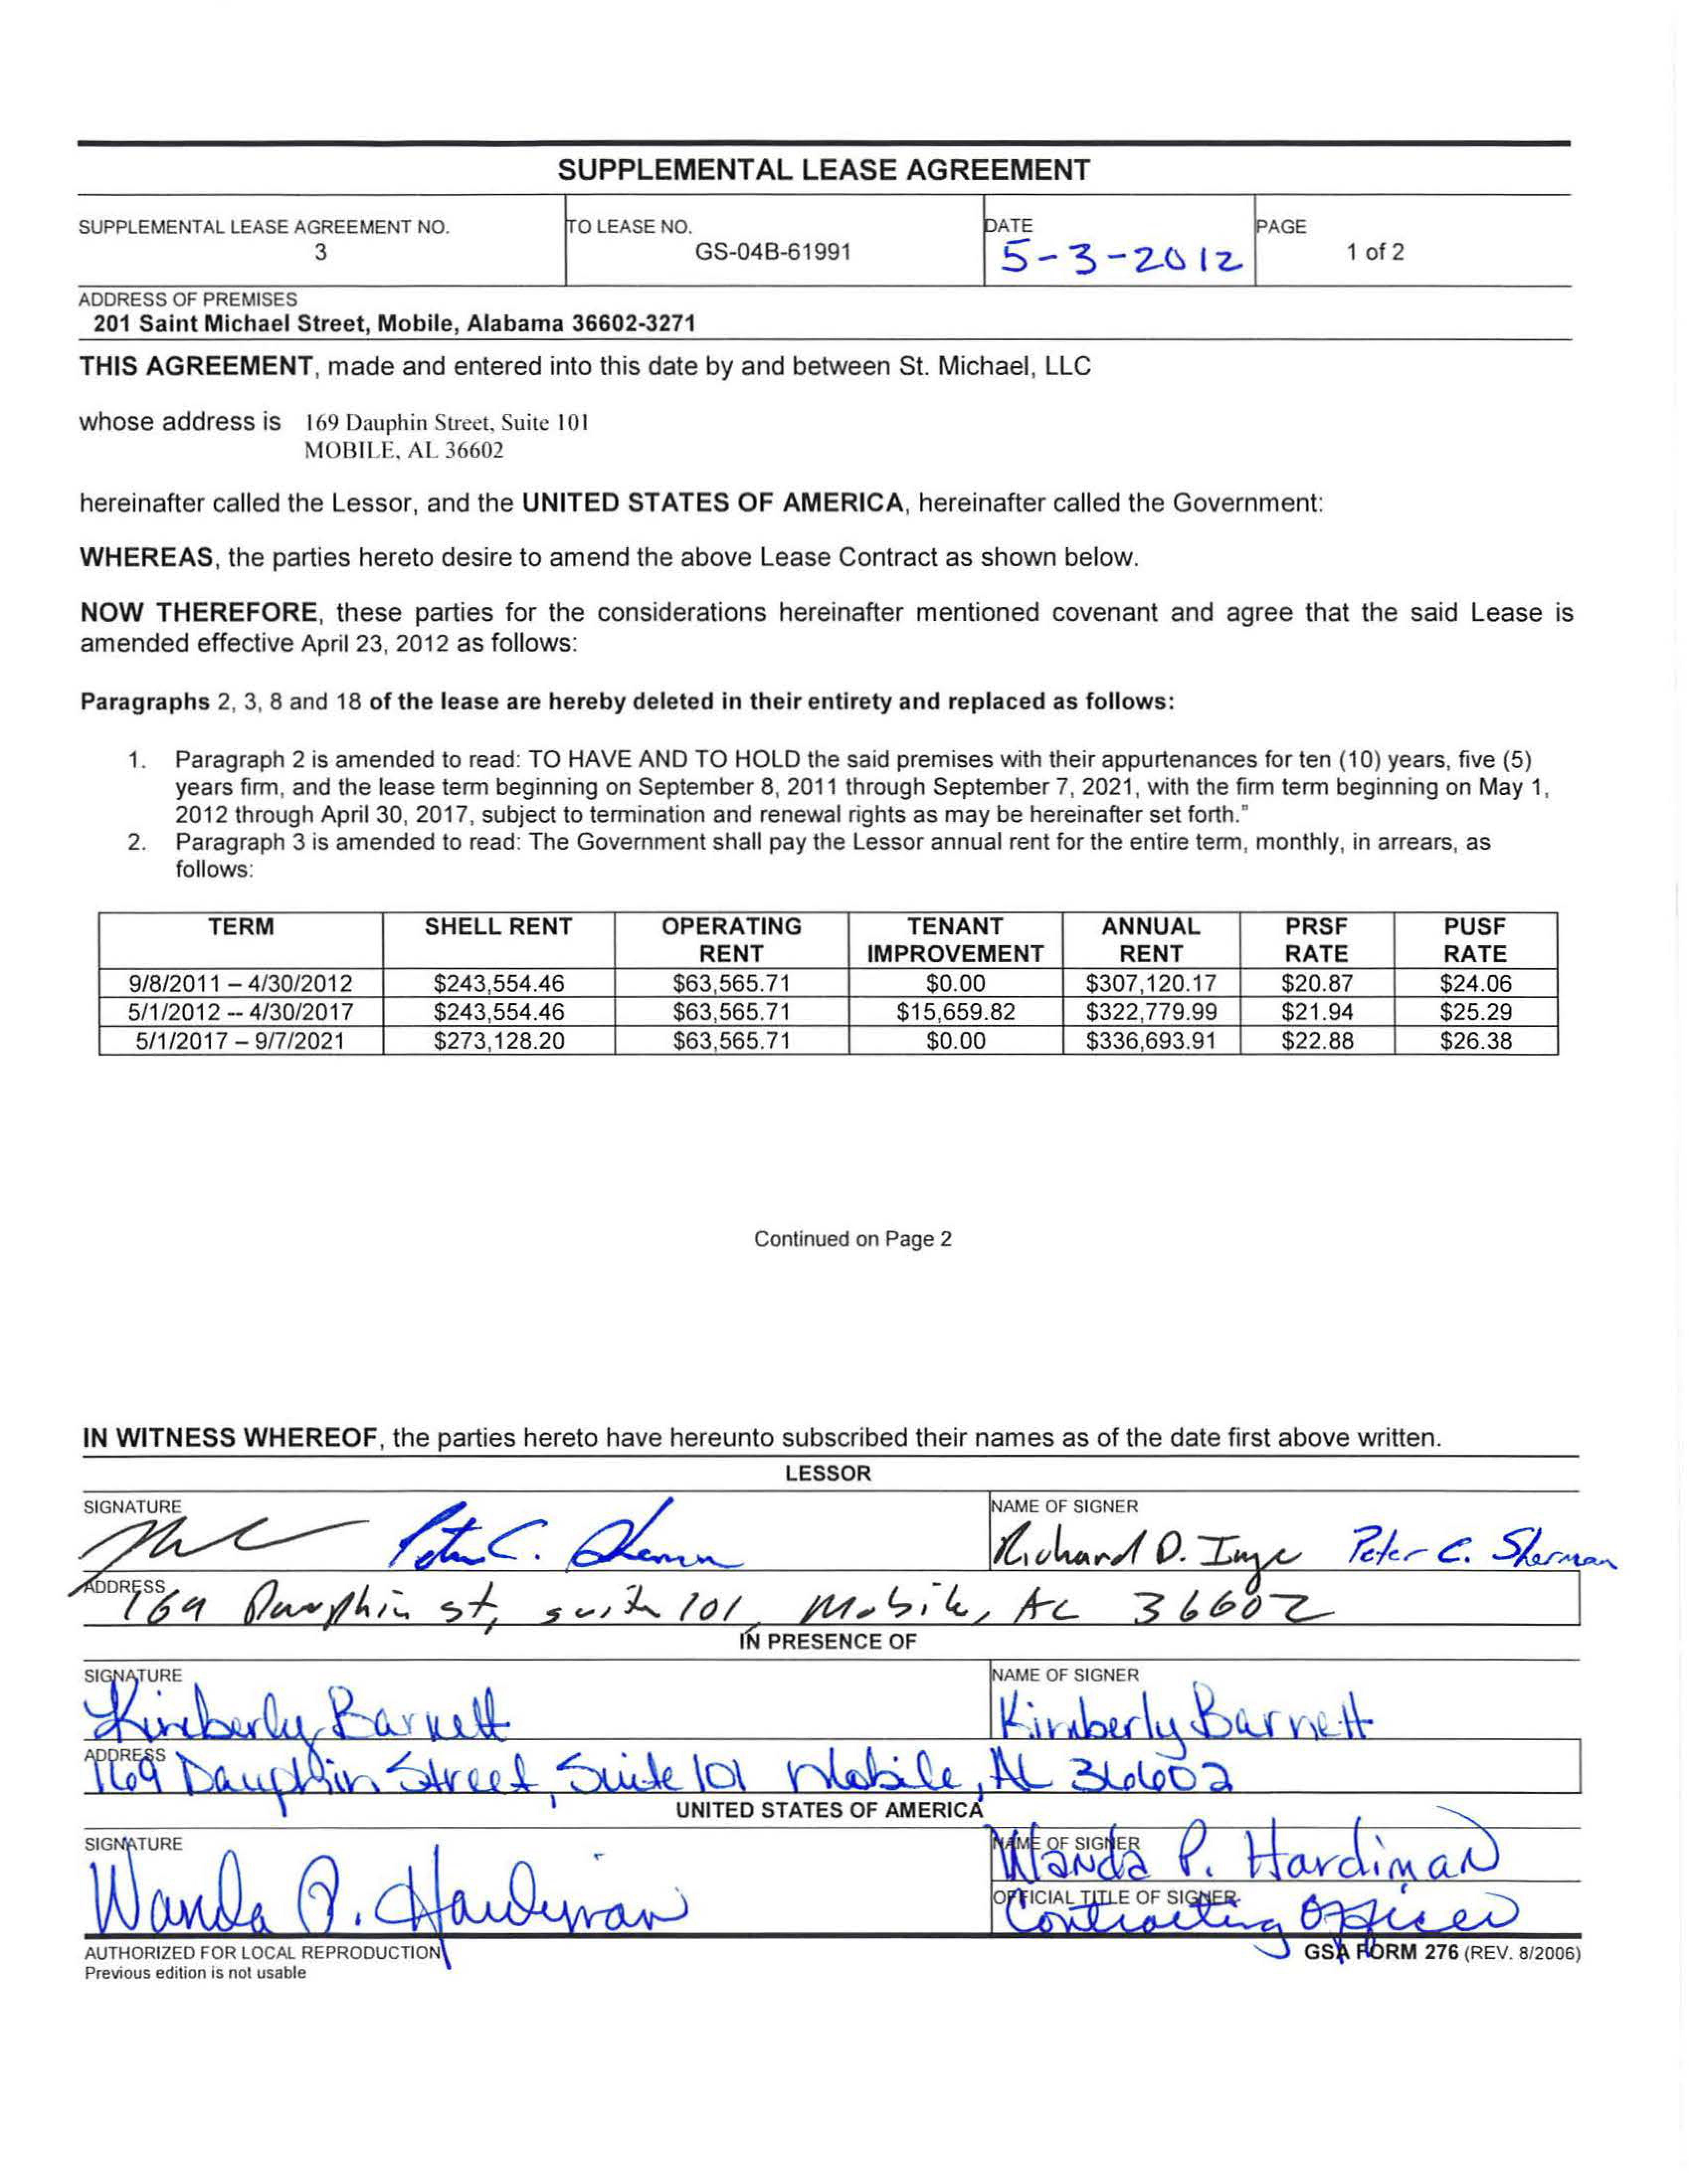 SUPPLEMENTAL LEASE AGREEMENT
SUPPLEMENTAL LEASE AGREEMENT NO.
3
TO LEASE NO.
GS-04B-61991
DATE
5-3-2012
PAGE
1 of 2
ADDRESS OF PREMISES
201 Saint Michael Street, Mobile, Alabama 36602-3271
THIS AGREEMENT, made and entered into this date by and between St. Michael, LLC
whose address is 169 Dauphin Street, Suite 101
MOBILE, AL 36602
hereinafter called the Lessor, and the UNITED STATES OF AMERICA, hereinafter called the Government:
WHEREAS, the parties hereto desire to amend the above Lease Contract as shown below.
NOW THEREFORE, these parties for the considerations hereinafter mentioned covenant and agree that the said Lease is
amended effective April 23, 2012 as follows:
Paragraphs 2, 3, 8 and 18 of the lease are hereby deleted in their entirety and replaced as follows:
1. Paragraph 2 is amended to read: TO HAVE AND TO HOLD the said premises with their appurtenances for ten (10) years, five (5)
years firm, and the lease term beginning on September 8, 2011 through September 7, 2021, with the firm term beginning on May 1,
2012 through April 30, 2017, subject to termination and renewal rights as may be hereinafter set forth."
2. Paragraph 3 is amended to read: The Government shall pay the Lessor annual rent for the entire term, monthly, in arrears, as
follows:
TERM SHELL RENT OPERATING RENT TENANT IMPROVEMENT ANNUAL RENT PRSF RATE PUSF RATE
9/8/2011 – 4/30/2012 $243,554.46 $63,565.71 $0.00 $307,120.17 $20.87 $24.06
5/1/2012 -- 4/30/2017 $243,554.46 $63,565.71 $15,659.82 $322,779.99 $21.94 $25.29
5/1/2017 – 9/7/2021 $273,128.20 $63,565.71 $0.00 $336,693.91 $22.88 $26.38
Continued on Page 2
IN WITNESS WHEREOF, the parties hereto have hereunto subscribed their names as of the date first above written.
LESSOR
SIGNATURE
Peter C. Sherman
NAME OF SIGNER
Richard D. Inge Peter C. Sherman
ADDRESS
169 Dauphin st, suite 101, Mobile, AL 36602
IN PRESENCE OF
SIGNATURE
Kimberly Barnett
NAME OF SIGNER
Kimberly Barnett
ADDRESS
169 Dauphin Street, Suite 101 Mobile, AL 36602
UNITED STATES OF AMERICA
SIGNATURE
Wanda P. Hardiman
NAME OF SIGNER
Wanda P. Hardiman
OFFICIAL TITLE OF SIGNER
Contracting Officer
AUTHORIZED FOR LOCAL REPRODUCTION
Previous edition is not usable
GSA FORM 276 (REV. 8/2006)